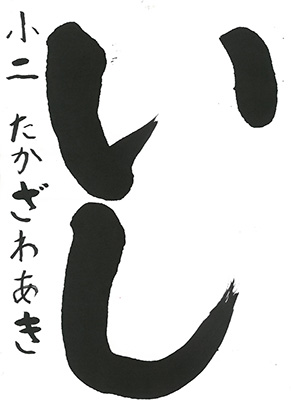 いし
小二 たかざわあき